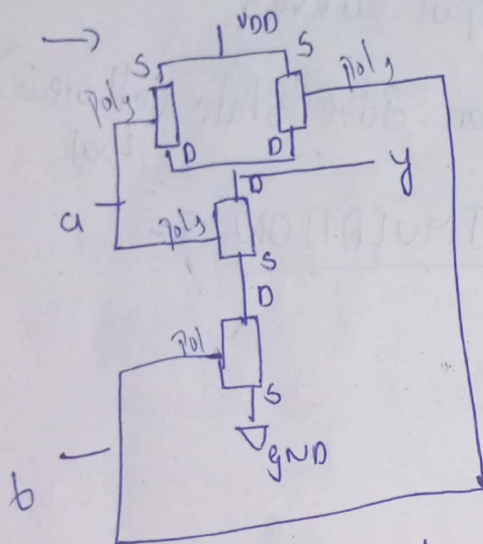 VDD
S S
poly poly
D D
y
D
a
poly
S
D
pol
S
b
GND